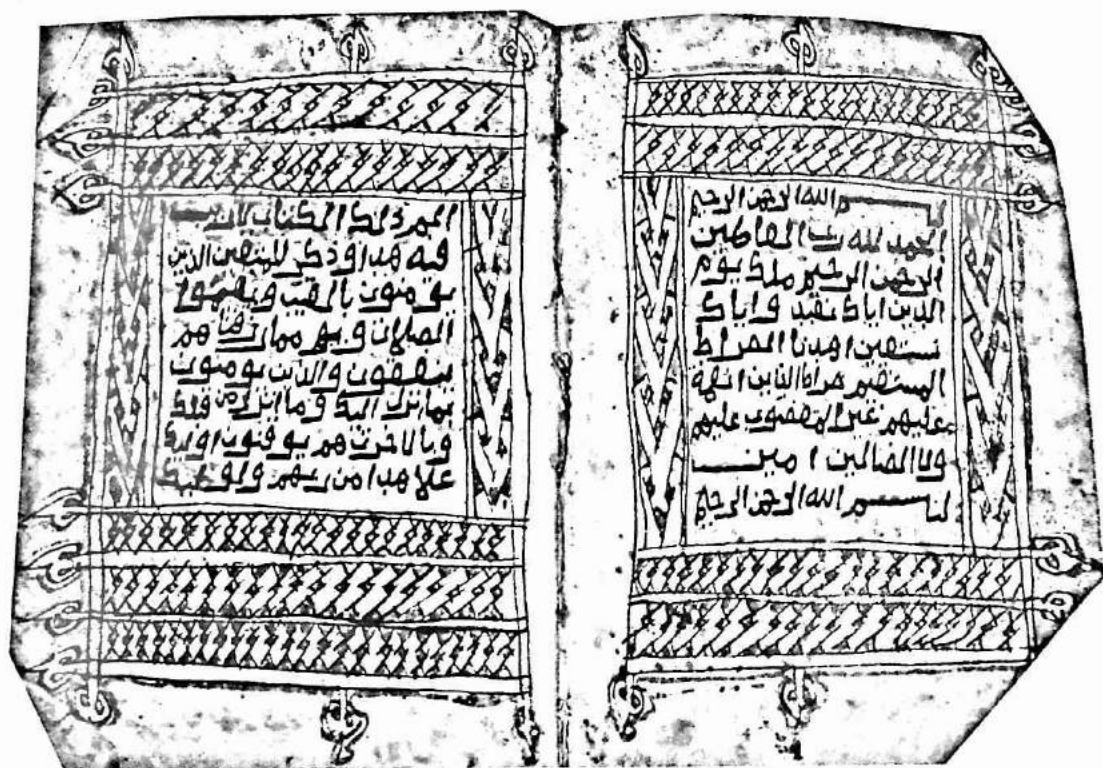 بسم الله الرحمن الرحيم
الحمد لله رب العالمين
الرحمن الرحيم ملك يوم
الدين اياك نعبد واياك
نستعين اهدنا الصراط
المستقيم صراط الذين انعمة
عليهم غير المغضوب عليهم
ولا الضالين امين
بسم الله الرحمن الرحيم
الم ذلك الكتاب لا ريب
فيه هدا وذكر للمتقين الذين
يومنون بالغيب ويقيموا
الصلات مما رزقناهم
ينفقون والذين يومنون
بما انزل اليك وما انزل من قبلك
وبالاخرت هم يوقنون اوليك
علا هدا من ربهم